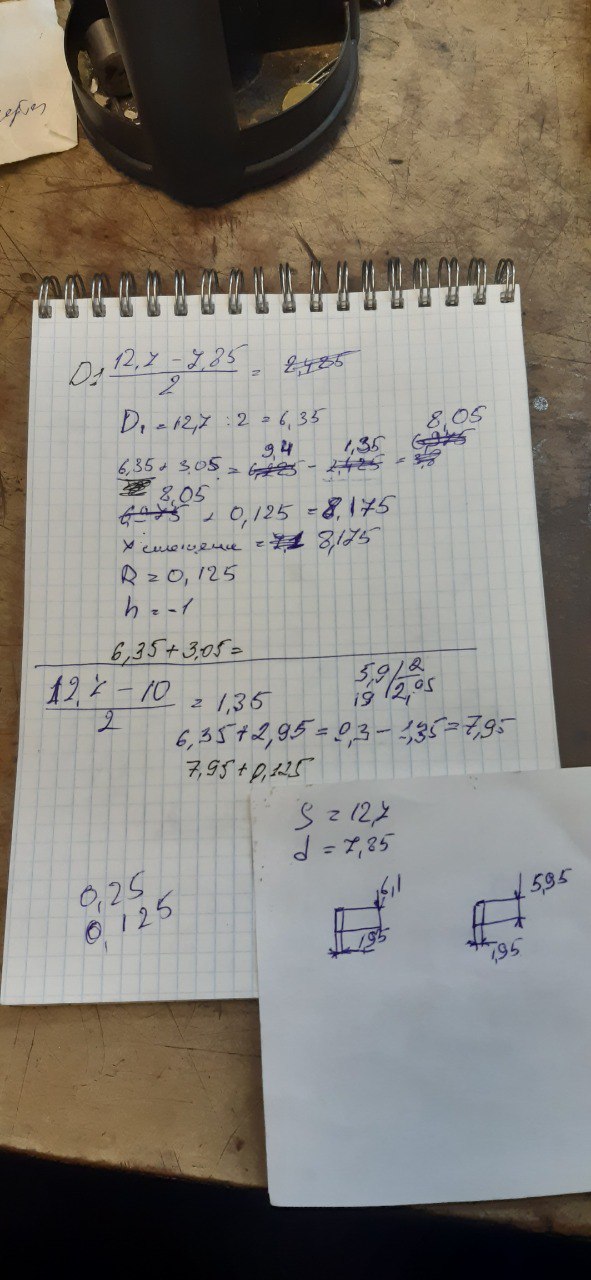 D1 12,7 - 7,85 / 2 =
D1 = 12,7 : 2 = 6,35
8,05
9,4 1,35
6,35 + 3,05 = - =
8,05
+ 0,125 = 8,175
X смещения = 8,175
R = 0,125
h = -1
6,35 + 3,05 =
12,7 - 10 / 2 = 1,35
5,9 / 2
19 2,95
6,35 + 2,95 = 9,3 - 1,35 = 7,95
7,95 + 0,125
0,25
0,125
S = 12,7
d = 7,85
6,1 5,95
1,95 1,95